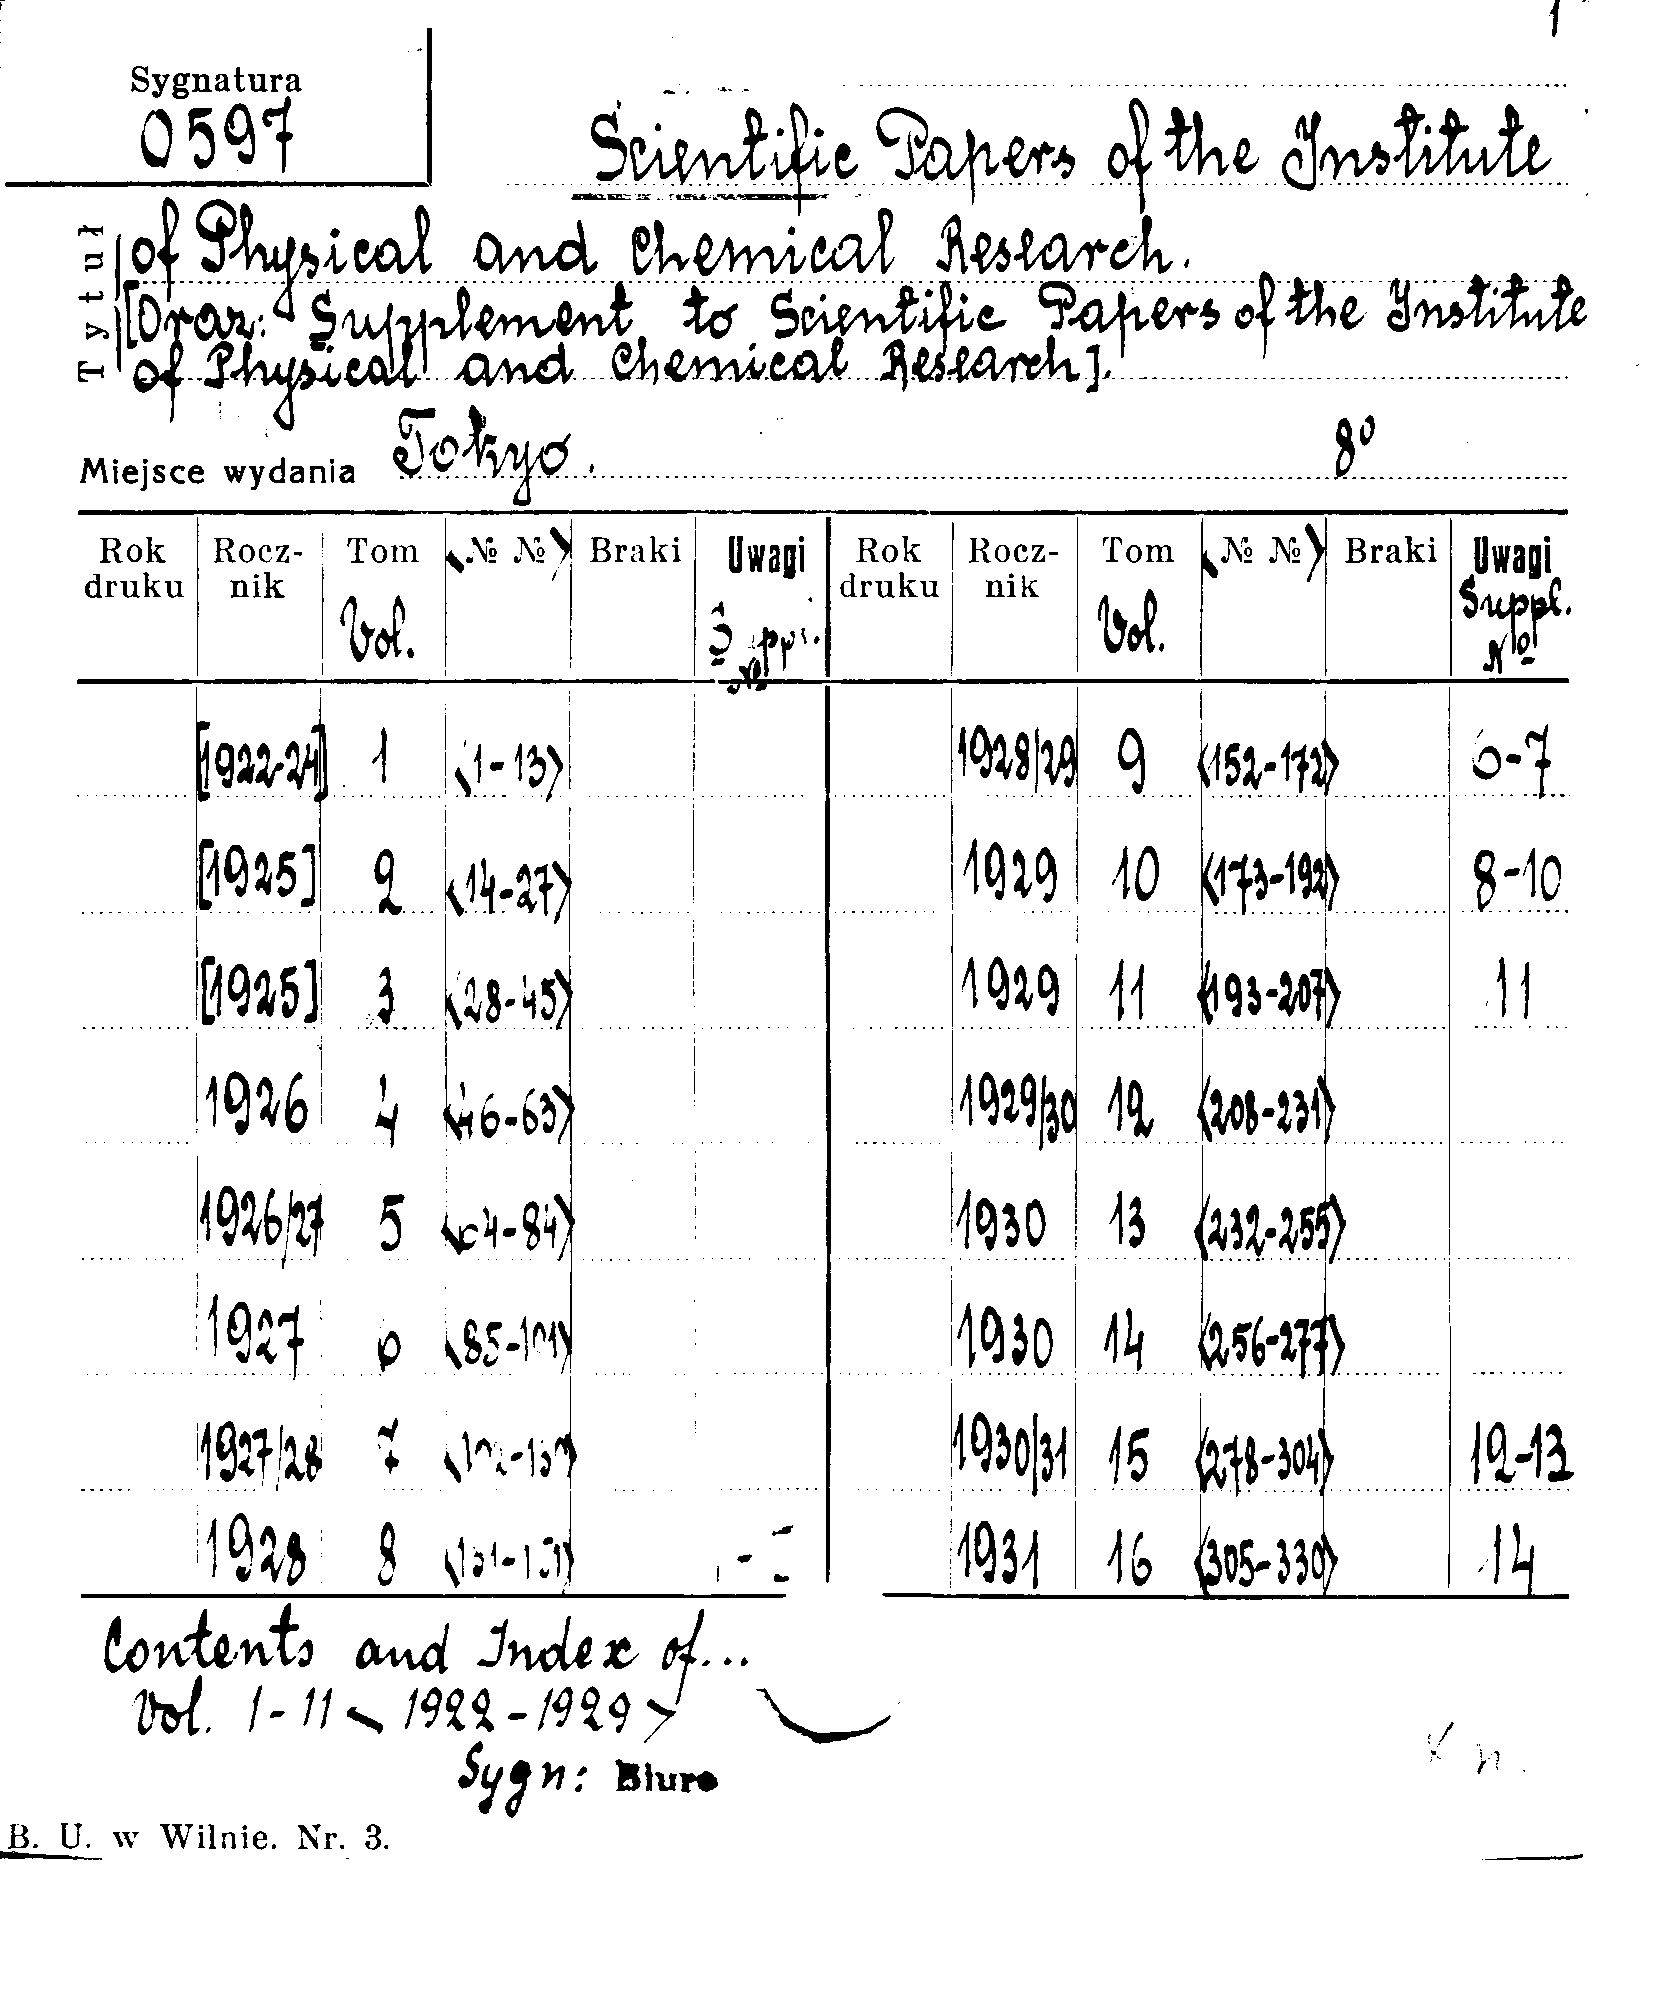 1
Sygnatura
0597
Scientific Papers of the Institute
Tytuł
of Physical and Chemical Research.
[Oraz: Supplement to Scientific Papers of the Institute
of Physical and Chemical Research].
Miejsce wydania Tokyo. 8º
Rok druku Rocznik Tom Vol. <№ №> Braki Uwagi Suppl. № Rok druku Rocznik Tom Vol. <№ №> Braki Uwagi Suppl. Nº
[1922-24] 1 <1-13> 1928/29 9 <152-172> 6-7
[1925] 2 <14-27> 1929 10 <173-192> 8-10
[1925] 3 <28-45> 1929 11 <193-207> 11
1926 4 <46-63> 1929/30 12 <208-231>
1926/27 5 <64-84> 1930 13 <232-255>
1927 6 <85-101> 1930 14 <256-277>
1927/28 7 1930/31 15 <278-304> 12-13
1928 8 1931 16 <305-330> 14
Contents and Index of...
Vol. 1-11 < 1922-1929 >
Sygn: Biuro
B. U. w Wilnie. Nr. 3.